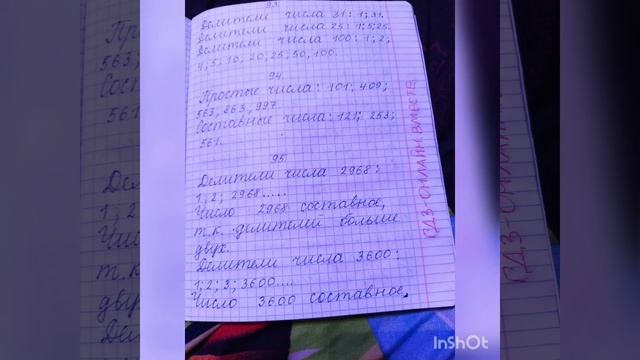 93.
Делители числа 31: 1; 31.
Делители числа 25: 1; 5; 25.
Делители числа 100: 1; 2;
4; 5; 10; 20; 25; 50; 100.
94.
Простые числа: 101; 409;
563, 863, 997.
Составные числа: 121; 253;
561.
95
Делители числа 2968:
1; 2; 2968......
Число 2968 составное,
т.к. делителей больше
двух.
Делители числа 3600:
1; 2; 3; 3600....
Число 3600 составное,
ГДЗ-ОНЛАЙН ВМЕСТЕ
InShOt